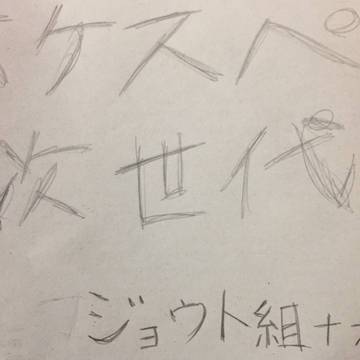 ポケスペ
次世代
ジョウト組+